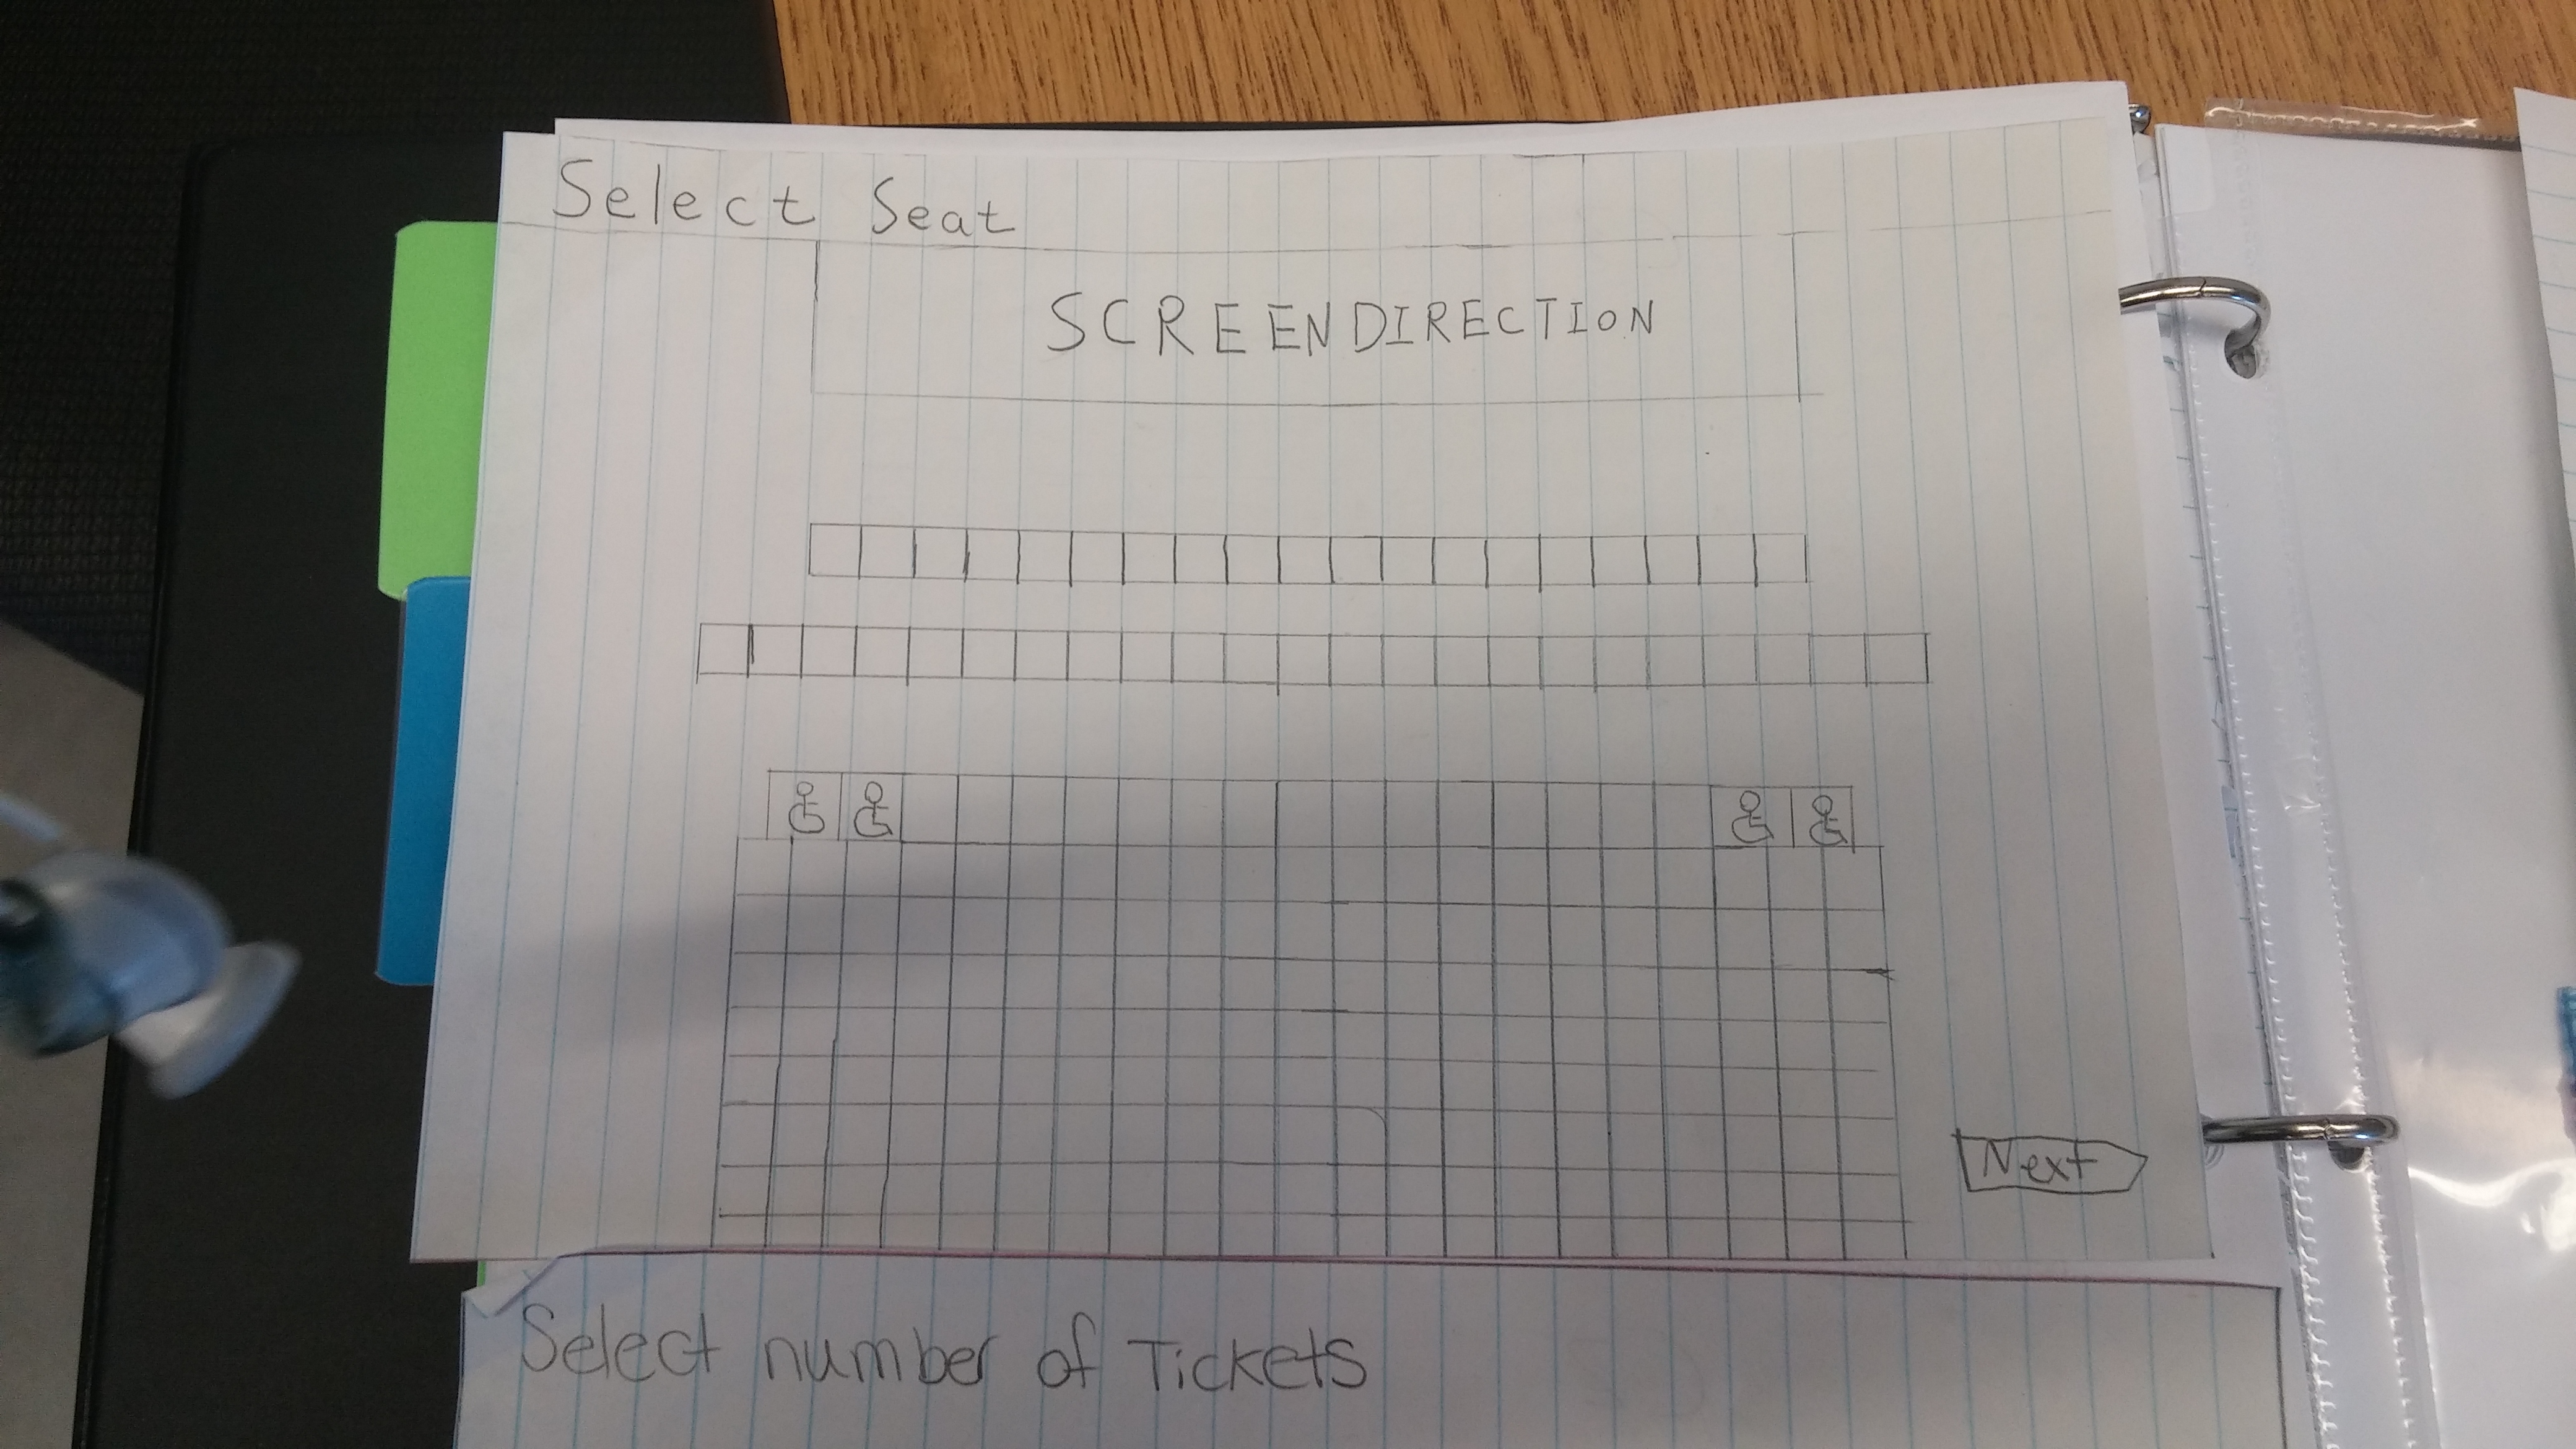 Select Seat
SCREEN DIRECTION
Next
Select number of Tickets